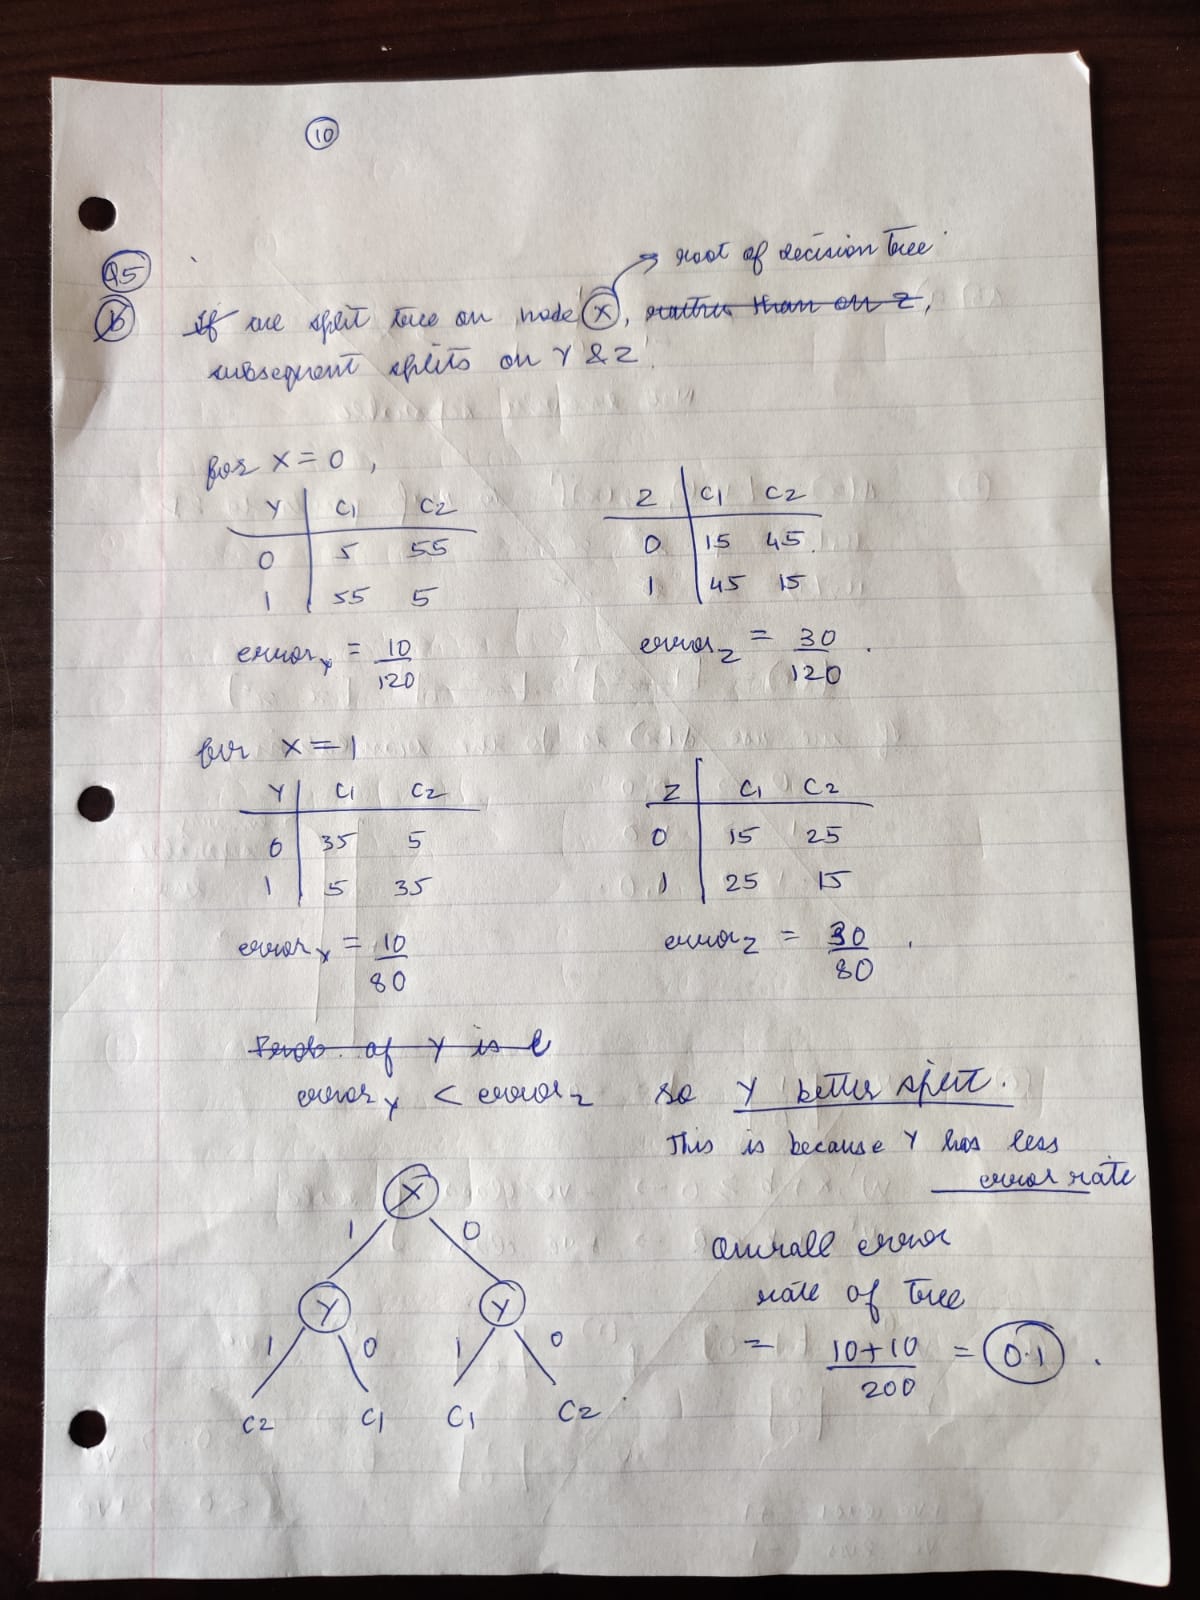 10
Q5
b
root of decision tree.
If we split tree on node X, rather than on Z,
subsequent splits on Y & Z.
for X = 0,
Y C1 C2
0 5 55
1 55 5
errorY = 10/120
Z C1 C2
0 15 45
1 45 15
errorZ = 30/120
for X = 1
Y C1 C2
0 35 5
1 5 35
errorY = 10/80
Z C1 C2
0 15 25
1 25 15
errorZ = 30/80
Prob. of Y is l
errorY < errorZ so Y better split.
This is because Y has less
error rate
X
1 0
Y Y
1 0 1 0
C2 C1 C1 C2
Overall error
rate of tree
= 10+10/200 = 0.1